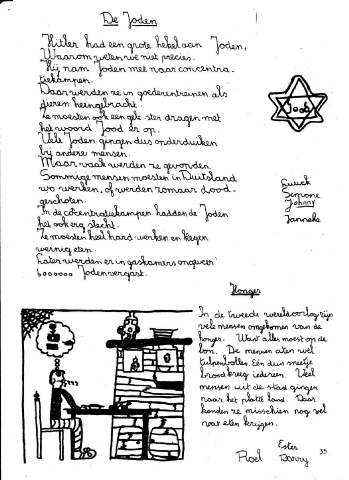 De Joden
Hitler had een grote hekel aan Joden,
Waarom weten we niet precies.
Hij nam Joden mee naar concentra-
tiekampen.
Daar werden ze in goederentreinen als
dieren heengebracht.
Ze moesten ook een gele ster dragen met
het woord Jood er op.
Vele Joden gingen dus onderduiken
bij andere mensen.
Maar vaak werden ze gevonden.
Sommige mensen moesten in Duitsland
werken, of werden zomaar dood-
geschoten.
In de concentratiekampen hadden de Joden
het ook erg slecht.
Ze moesten heel hard werken en kregen
weinig eten.
Later werden er in gaskamers ongeveer
6000000 Joden vergast.
Jood
Guuck
Simone
Johnny
Janneke
Honger
In de tweede wereldoorlog zijn
veel mensen omgekomen van de
honger. Want alles moest op de
bon. De mensen aten wel
tulpenbollen. Eén dun sneetje
brood kreeg iedereen. Veel
mensen uit de stad gingen
naar het platte land. Daar
konden ze misschien nog wel
wat eten krijgen.
Ester
Roel Barry
35